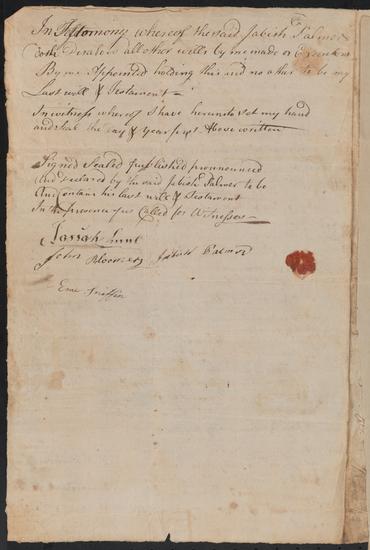 In Testomony whereof the said Jabish Palmer
Doth Disalow all other wills by me made or Executors
By me Appointed holding this and no other to be my
Last will & Testament
In witness whereof I have hereunto set my hand
and seal the day & year first Above written
Signed Sealed published pronounced
And Declared by the said Jabish Palmer to be
And Contain his last will & Testament
In the presence of us Called for Witnesses
Josiah Hunt
John Bloomer Jabish Palmer
Griffin